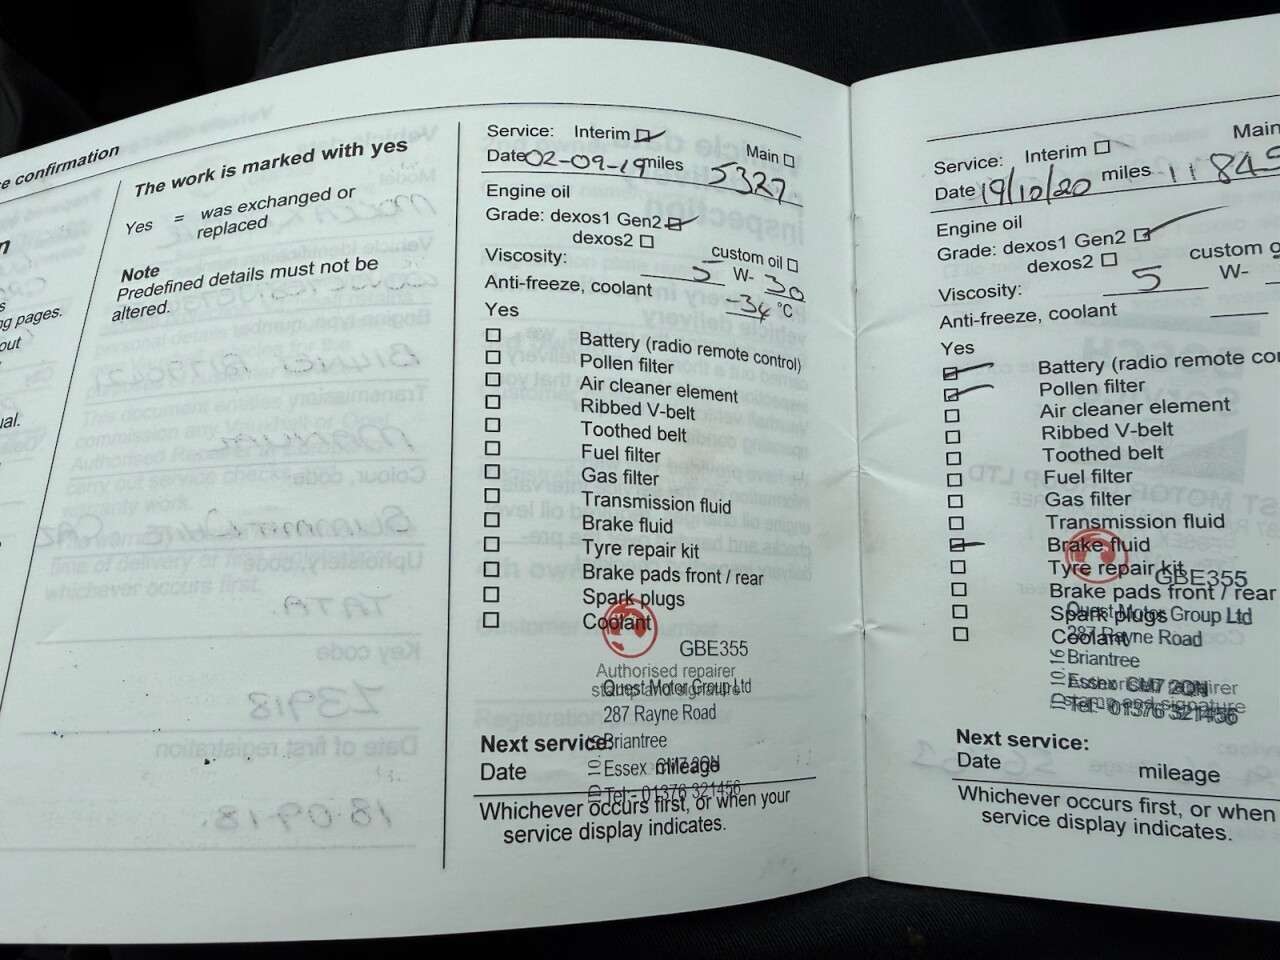 e confirmation
n
s
g pages.
out
ual.
The work is marked with yes
Yes = was exchanged or
replaced
Note
Predefined details must not be
altered.
Service: Interim Main
Date 02-09-19 miles 5327
Engine oil
Grade: dexos1 Gen2
dexos2 custom oil
Viscosity: 5 W- 30
Anti-freeze, coolant -34 °C
Yes
Battery (radio remote control)
Pollen filter
Air cleaner element
Ribbed V-belt
Toothed belt
Fuel filter
Gas filter
Transmission fluid
Brake fluid
Tyre repair kit
Brake pads front / rear
Spark plugs
Coolant
GBE355
Authorised repairer
stamp and signature
Quest Motor Group Ltd
287 Rayne Road
Briantree
Essex CM7 2QN
Tel:- 01376 321456
Next service:
Date mileage
Whichever occurs first, or when your
service display indicates.
Service: Interim Main
Date 19/10/20 miles 11849
Engine oil
Grade: dexos1 Gen2
dexos2 custom o
Viscosity: 5 W-
Anti-freeze, coolant
Yes
Battery (radio remote con
Pollen filter
Air cleaner element
Ribbed V-belt
Toothed belt
Fuel filter
Gas filter
Transmission fluid
Brake fluid
Tyre repair kit
Brake pads front / rear
Spark plugs
Coolant
GBE355
Quest Motor Group Ltd
287 Rayne Road
Briantree
Essex CM7 2QN
Tel:- 01376 321456
Authorised repairer
stamp and signature
Next service:
Date mileage
Whichever occurs first, or when
service display indicates.